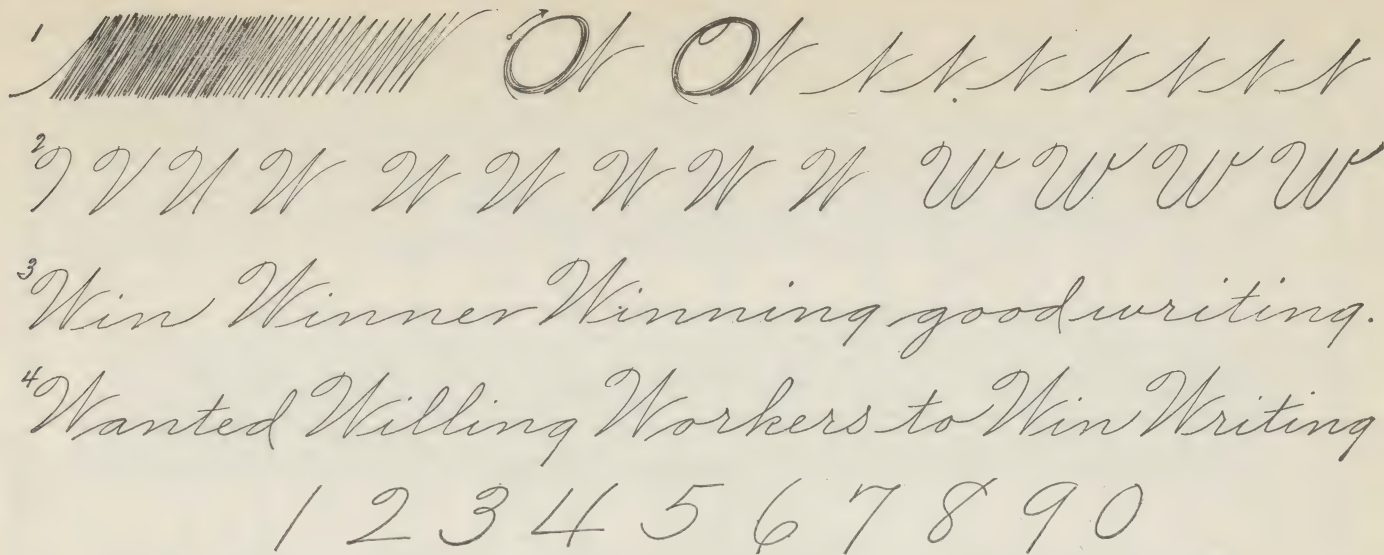 1
2 W W W W W W W W W
3 Win Winner Winning good writing.
4 Wanted Willing Workers to Win Writing
1 2 3 4 5 6 7 8 9 0